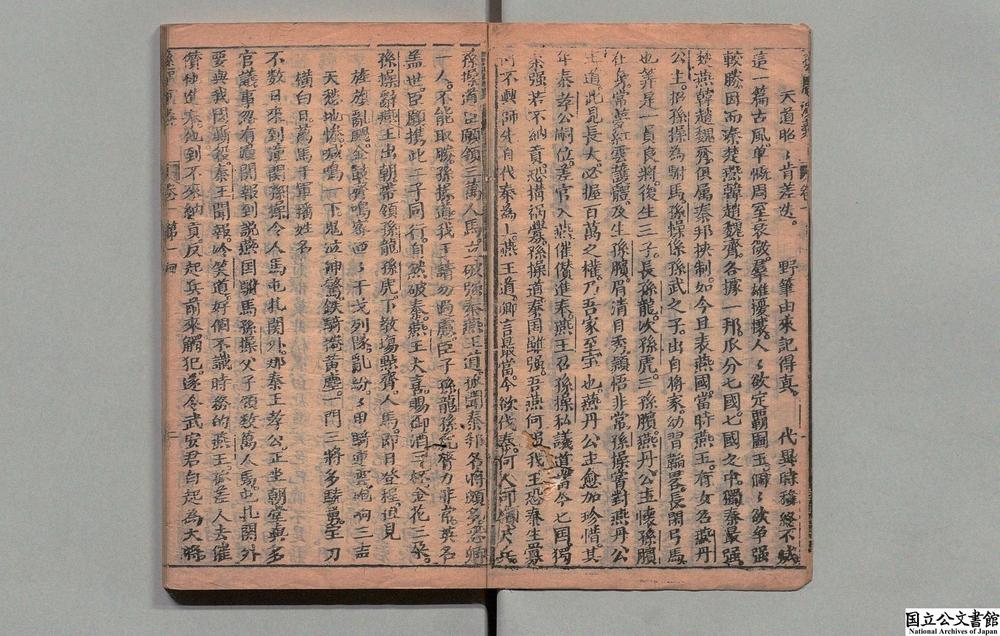 天道昭〻肯差迭。　野筆由來記得真。　代異時發終不
這一篇古風。單慨周室衰微。羣雄擾攘。人〻欲定霸圖王。個〻欲爭強
較勝。因而秦楚燕韓趙魏齊。各據一邦。瓜分七國。七國之中。獨秦最強。
楚燕韓趙魏齊俱屬秦邦挾制。如今且表燕國。當時燕王。有女名燕丹
公主。招孫操為駙馬。孫操係孫武之子。出自將家。幼習韜畧。長閑弓馬
也算是一員良將。後生三子。長孫龍。次孫虎。三孫臏。燕丹公主懷孫臏
在身。常燕紅雲護體。及生孫臏。眉清目秀。穎悟非常。孫操嘗對燕丹公
主道。此兒長大。必握百萬之權。乃吾家至宝也。燕丹公主愈加珍惜。其
年秦孝公嗣位。差官入燕。催儹進奉。燕王召孫操私議道。當今七囯。獨
秦强。若不納貢。恐搆禍釁。孫操道。秦囯雖強。吾燕何弱。我王恐秦生釁
何不興師。先自伐秦為上。燕王道。卿言最當。今欲伐秦。何人可領人兵。
孫操道。臣願領三萬人馬。立破強秦。燕王道。孤聞秦邦名將頗多。恐卿
一人。不能取勝。孫操道。我王請勿過慮。臣子孫龍孫虎。膂力非常。英名
盖世。臣願携此二子同行。自然破秦。燕王大喜。賜御酒三杯。金花三朶。
孫操辭燕王出朝。帶領孫龍孫虎。下教塲點齊人馬。即日登程。但見
旌旗亂閃。金鼓齊鳴。密匝〻干戈列隊。亂紛〻甲騎雲
天愁地慘。喊鳴一下鬼泣神驚。鉄騎捲黄塵。一門三將多驍勇。空刀
橫白日。萬馬千軍播姓名
不数日來到潼関。孫操令人馬屯扎関外。那秦王孝公。正坐朝堂。與多
官議事。忽有潼関報到。說燕国駙馬孫操父子。領数萬人馬。屯扎関外
要與我国廝殺。秦王聞報。冷笑道。好個不識時務的燕王。孤差人去催
儹他進奉。他到不來納貢。反起兵前來觸犯。遂令武安君白起為大將。
卷一
第一囬
国立公文書館
National Archives of Japan